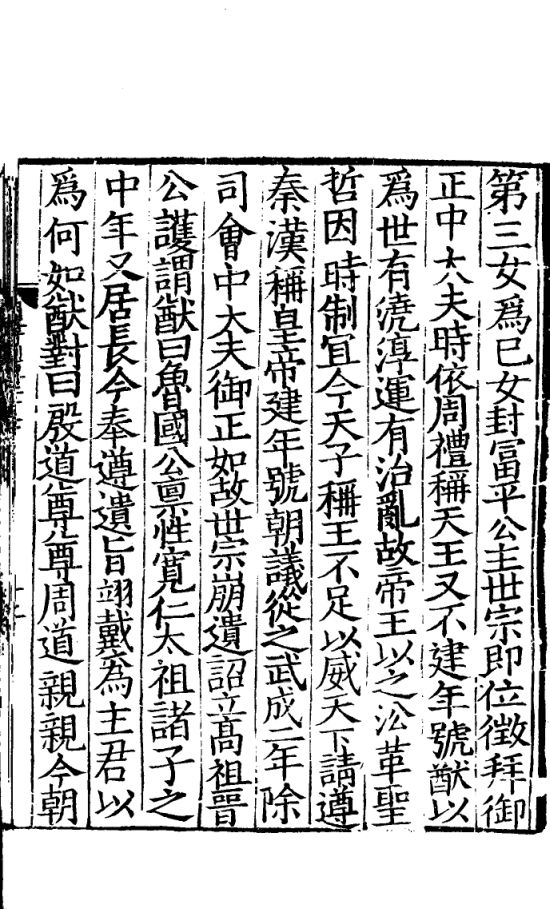 第三女爲己女封富平公主世宗即位徵拜御
正中大夫時依周禮稱天王又不建年號猷以
爲世有澆淳運有治亂故帝王以之沿革聖
哲因時制宜今天子稱王不足以威天下請遵
秦漢稱皇帝建年號朝議從之武成二年除
司會中大夫御正如故世宗崩遺詔立髙祖晉
公護謂猷曰魯國公禀性寛仁太祖諸子之
中年又居長今奉遵遺旨翊戴爲主君以
爲何如猷對曰殷道尊尊周道親親今朝